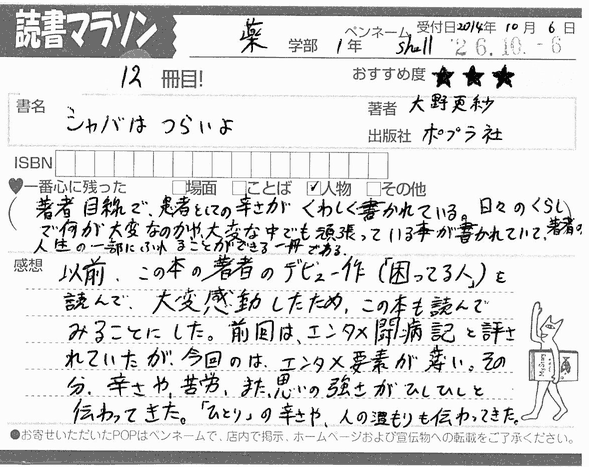 読書マラソン
薬 学部 1年 ペンネーム shell 受付日2014年 10月 6日
'26.10.-6
12 冊目! おすすめ度 ★★★
書名 シャバはつらいよ
著者 大野更紗
出版社 ポプラ社
ISBN
♥一番心に残った □場面 □ことば ☑人物 □その他
(著者目線で、患者としての辛さがくわしく書かれている。日々のくらし
で何が大変なのかや、大変な中でも頑張っている事が書かれていて、著者の
人生の一部にふれることができる一冊である。
感想 以前、この本の著者のデビュー作「困ってる人」を
読んで、大変感動したため、この本も読んで
みることにした。前回は、エンタメ闘病記と評さ
れていたが、今回のは、エンタメ要素が薄い。その
分、辛さや、苦労、また、思いの強さがひしひしと
伝わってきた。「ひとり」の辛さや、人の温もりも伝わってきた。
●お寄せいただいたPOPはペンネームで、店内で掲示、ホームページおよび宣伝物への転載をご了承ください。